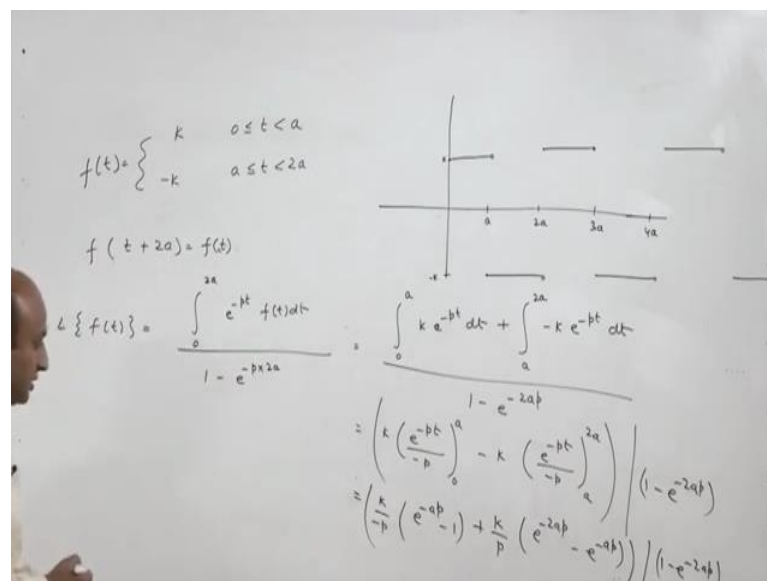 f(t) = { k 0 ≤ t < a
-k a ≤ t < 2a
f(t + 2a) = f(t)
k
-k
a 2a 3a 4a
L{f(t)} = ∫₀^{2a} e^{-pt} f(t)dt / (1 - e^{-p×2a}) = (∫₀^{a} k e^{-pt} dt + ∫ₐ^{2a} -k e^{-pt} dt) / (1 - e^{-2ap})
= (k (e^{-pt}/-p)₀^{a} - k (e^{-pt}/-p)ₐ^{2a}) / (1 - e^{-2ap})
= (k/-p (e^{-ap} - 1) + k/p (e^{-2ap} - e^{-ap})) / (1 - e^{-2ap})